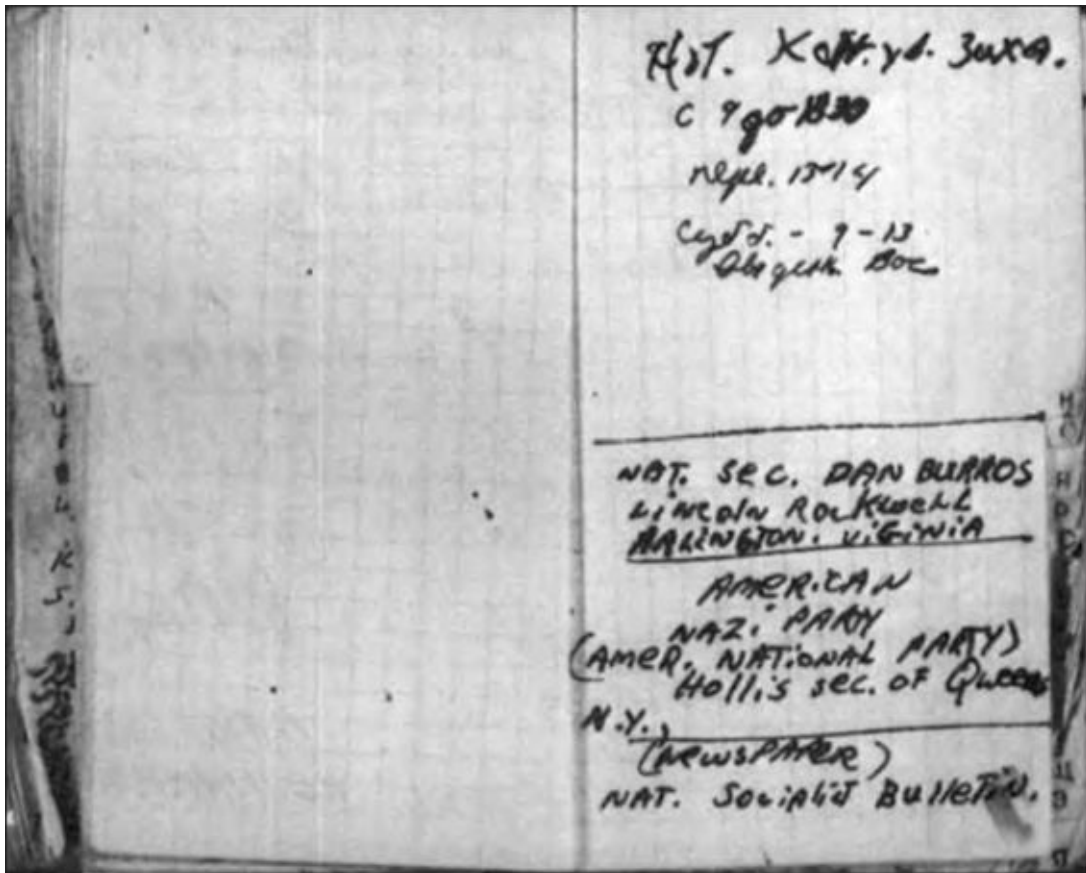 Нот. Конт. ул. Зиха.
с 9 до
пере. 13-14
Субб. - 9-13
NAT. SEC. DAN BURROS
LINCOLN ROCKWELL
ARLINGTON. VIGINIA
AMERICAN
NAZI PARTY
(AMER. NATIONAL PARTY)
Hollis sec. of Queens
N.Y.,
(NEWSPAPER)
NAT. Socialist Bulletin.